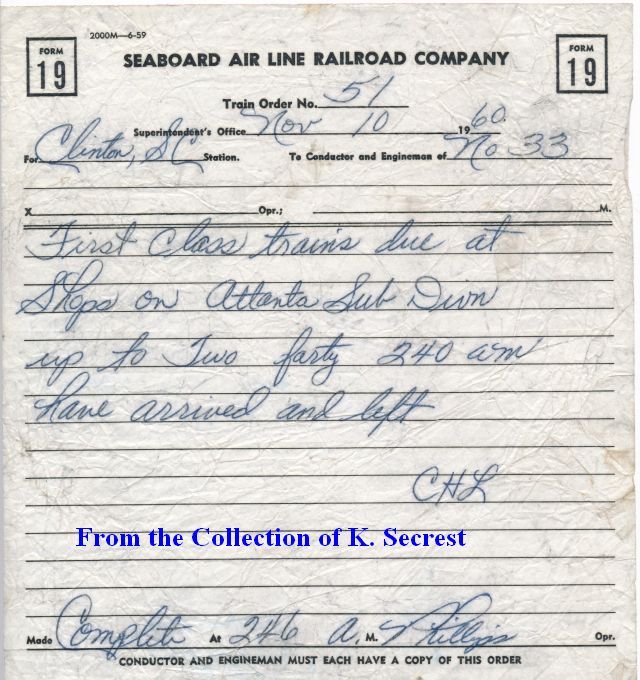 FORM 19
2000M—6-59
SEABOARD AIR LINE RAILROAD COMPANY
FORM 19
Train Order No. 51
Superintendent's Office Nov 10 1960
For Clinton, SC Station. To Conductor and Engineman of No 33
X Opr.; M.
First Class trains due at
Shops on Atlanta Sub Divn
up to Two farty 240 am
have arrived and left
CHL
From the Collection of K. Secrest
Made Complete At 246 A. M. Phillips Opr.
CONDUCTOR AND ENGINEMAN MUST EACH HAVE A COPY OF THIS ORDER